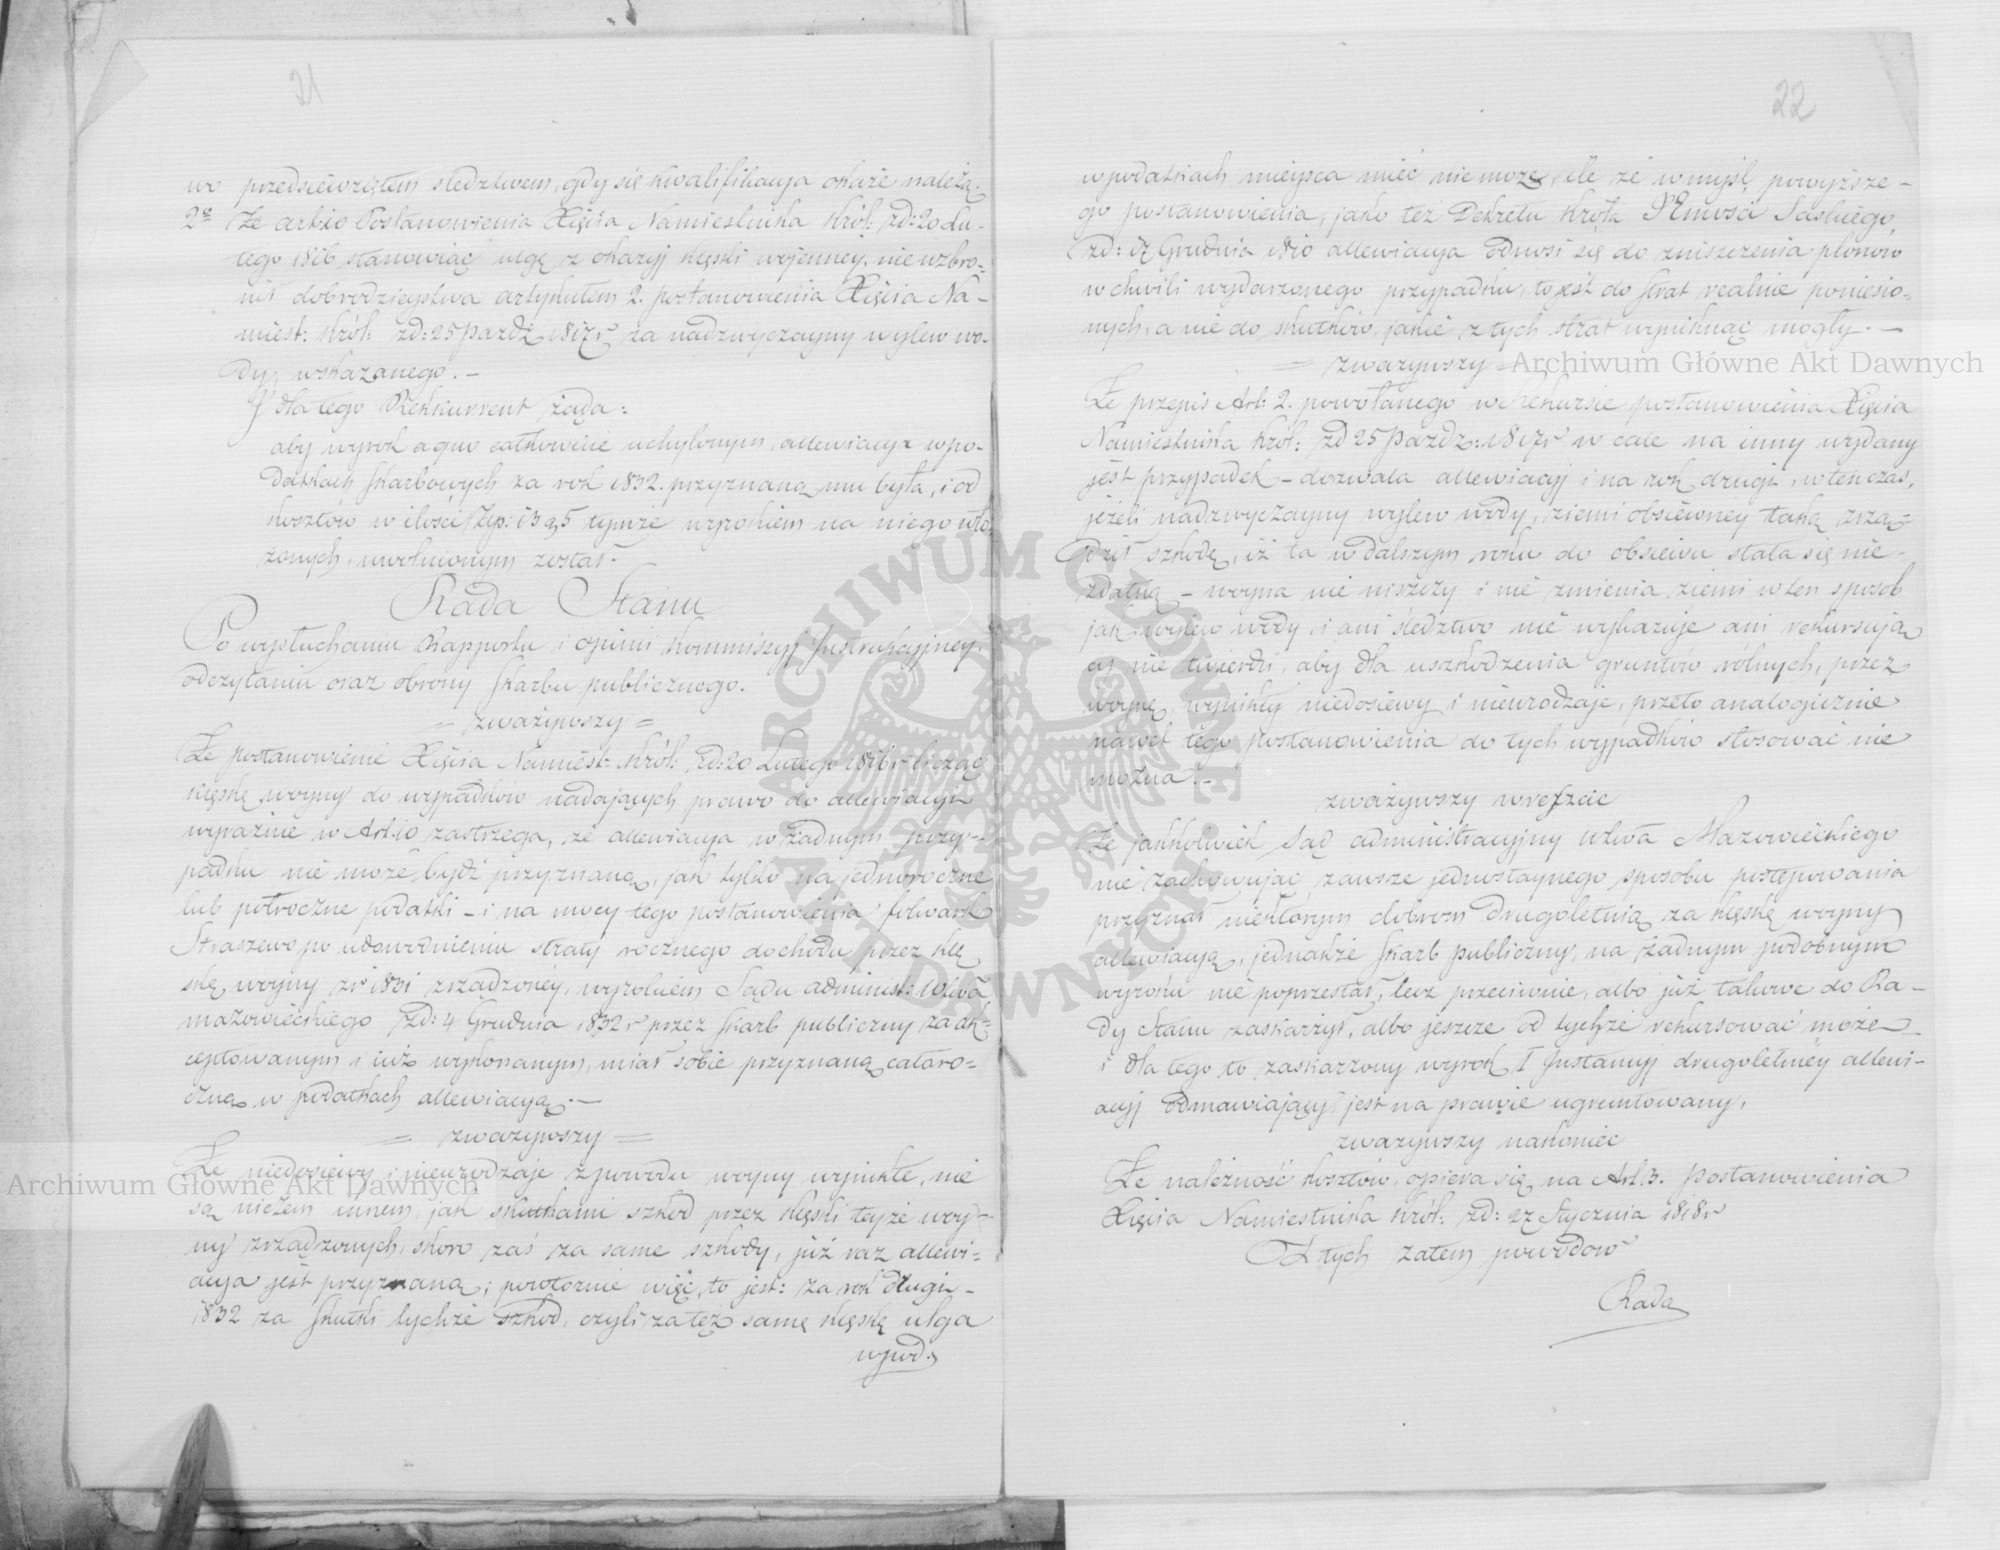 21
wo przedsiewziętem sledztwem, gdy się kwalifikacya okaże należą-
2re Że art: 10 Postanowienia Xięcia Namiestnika Król: zd: 20 Lu-
tego 1816 stanowiąc ulgę z okazyj klęski wojenney, nie wzbro-
nił dobrodzieystwa artykułem 2. postanowienia Xięcia Na-
miest: Król: zd: 25 Paźdź: 1817 r za nadzwyczayny wylew wo-
dy, wskazanego. –
I dla tego Rekkurrent żąda:
aby wyrok a quo całkowicie uchylonym, allewiacya w po-
datkach skarbowych za rok 1832. przyznaną mu była, i od
kosztów w ilości Złp: 13 g 5 tymże wyrokiem na niego wło
żonych, uwolnionym został. –
Rada Stanu
Po wysłuchaniu Rapportu i opinii Kommissyj Instrukcyjney,
odczytaniu oraz obrony Skarbu publicznego.
= zważywszy =
Że postanowienie Xięcia Namiest: Król: zd: 20 Lutego 1816 r licząc
klęskę woyny do wypadków nadających prawo do allewiacyi
wyraźnie w Art. 10 zastrzega, że allewiacya w żadnym przy-
padku nie może bydź przyznaną, jak tylko na jednoroczne
lub półroczne podatki – i na mocy tego postanowienia folwark
Straszewo po udowodnieniu straty rocznego dochodu przez klę
skę woyny z r 1831 zrządzoney, wyrokiem Sądu administ: Wdwa
mazowieckiego zd: 4 Grudnia 1832 r przez Skarb publiczny zaak-
ceptowanym i już wykonanym, miał sobie przyznaną całoro-
czną w podatkach allewiacyą. –
= zważywszy =
Że niedosiewy i nieurodzaje z powodu woyny wynikłe, nie
są niczem innem, jak skutkami szkod przez klęski teyże woy-
ny zrządzonych, skoro zaś za same szkody, już raz allewi-
acya jest przyznaną; powtornie więc, to jest: za rok drugi –
1832 za skutki tychże szkod, czyli za też samę klęskę ulga
w pod.
22
w podatkach mieysca mieć nie może, ile że w myśl powyższe-
go postanowienia, jako też Dekretu Króla JEmości Saskiego,
zd: 17 Grudnia 1810 allewiacya odnosi się do zniszczenia plonów
w chwili wydarzonego przypadku, to jest do strat realnie poniesio-
nych, a nie do skutków, jakie z tych strat wyniknąć mogły. –
= zważywszy =
Że przepis Art: 2. powołanego w Rekursie postanowienia Xięcia
Namiestnika Król: zd 25 Paźdz: 1817 r w cale na inny wydany
jest przypadek – dozwala allewiacyj i na rok drugi, w ten czas,
jeżeli nadzwyczayny wylew wody, ziemi obsiewney taką zrzą-
dził szkodę, iż ta w dalszym roku do obsiewu stała się nie-
zdatną – woyna nie niszczy i nie zmienia ziemi w ten sposob
jak wylew wody, i ani śledztwo nie wykazuje ani rekursują
cy nie twierdzi, aby dla uszkodzenia gruntów rólnych, przez
woynę, wynikły niedosiewy i nieurodzaje, przeto analogicznie
nawet tego postanowienia do tych wypadków stosować nie
można. –
zważywszy wreszcie
Że jakkolwiek Sąd administracyjny wdwa Mazowieckiego
nie zachowując zawsze jednostaynego sposobu postępowania
przyznał niektórym dobrom drugoletnią za klęskę woyny
allewiacyą, jednakże Skarb publiczny, na żadnym podobnym
wyroku nie poprzestał, lecz przeciwnie, albo już takowe do Ra-
dy Stanu zaskarżył, albo jeszcze od tychże rekursować może –
i dla tego to zaskarżony wyrok I Instancyj drugoletniey allewi-
acyj odmawiający jest na prawie ugruntowany,
zważywszy nakoniec
Że należność kosztów, opiera się na Art. 3. postanowienia
Xięcia Namiestnika Król: zd: 27 Stycznia 1818 r
Z tych zatem powodów
Rada
Archiwum Główne Akt Dawnych
Archiwum Główne Akt Dawnych
ARCHIWUM GŁÓWNE AKT DAWNYCH